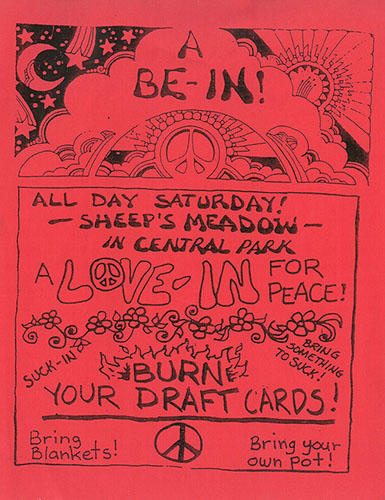 A
BE-IN!
ALL DAY SATURDAY!
- SHEEP'S MEADOW -
IN CENTRAL PARK
A LOVE-IN FOR
PEACE!
SUCK-IN
BRING
SOMETHING
TO SUCK!
BURN
YOUR DRAFT CARDS!
Bring
Blankets!
Bring your
own Pot!